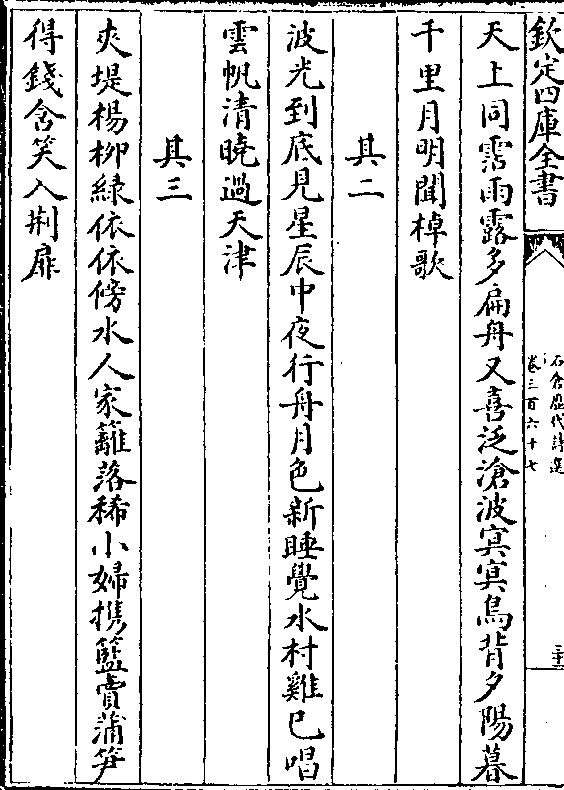 欽定四庫全書
石倉歷代詩選
卷三百六十七
天上同霑雨露多扁舟又喜泛滄波冥冥烏背夕陽暮
千里月明聞棹歌
其二
波光到底見星辰中夜行舟月色新睡覺水村雞已唱
雲帆清曉過天津
其三
夾堤楊柳綠依依傍水人家籬落稀小婦携籃賣蒲笋
得錢含笑入荆扉